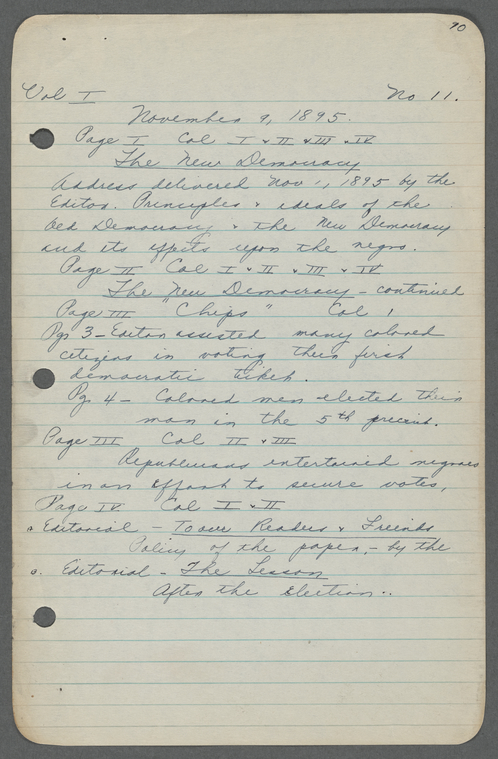 70
Vol I No 11.
November 9, 1895.
Page I Col I & II & III & IV
The New Democracy
Address delivered Nov 1, 1895 by the
Editor. Principles & ideals of the
Old Democracy & the New Democracy
and its effects upon the negro.
Page II Col I & II & III & IV
The New Democracy - continued
Page III "Chips" Col 1
Pgr 3 - Editor assisted many colored
citizins in voting their first
democratic ticket.
Pg 4 - Colored men elected their
man in the 5th precinct.
Page III Col II & III
Republicans entertained negroes
in an effort to secure votes,
Page IV Col I & II
a Editorial - To our Readers & Freinds
Policy of the paper, - by the
a. Editorial - The Lesson
After the Election..